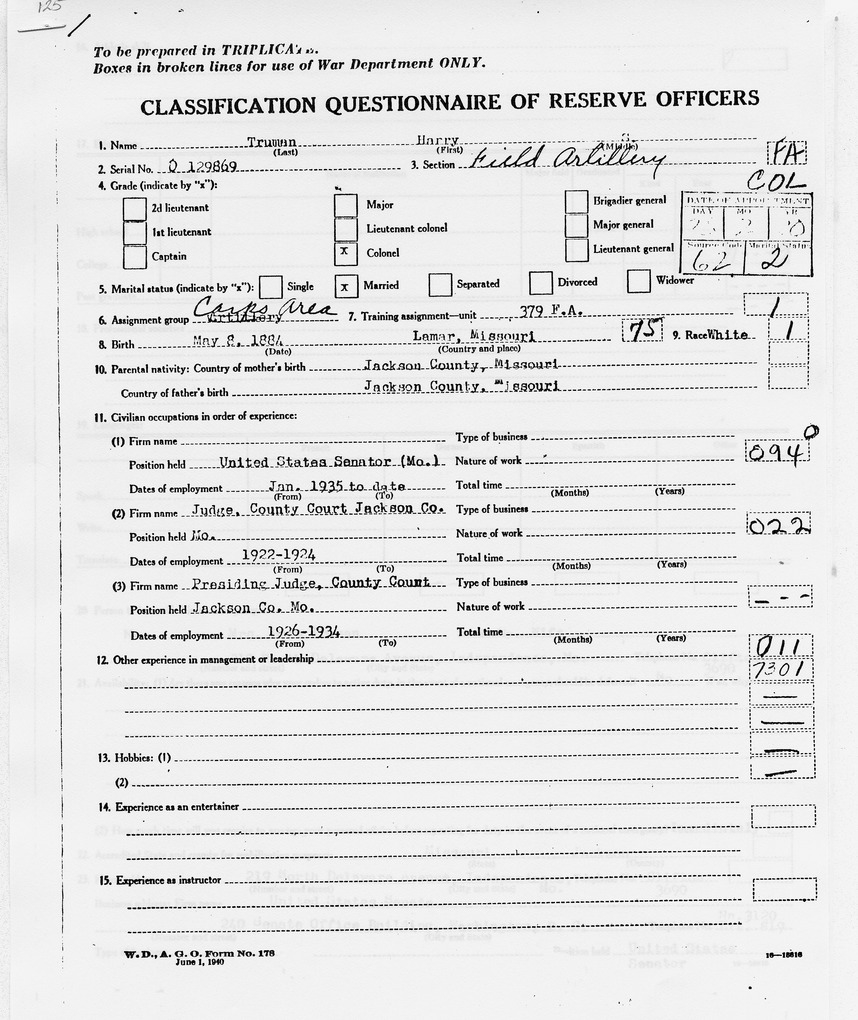 125
To be prepared in TRIPLICATE.
Boxes in broken lines for use of War Department ONLY.
CLASSIFICATION QUESTIONNAIRE OF RESERVE OFFICERS
1. Name Truman Harry S.
(Last) (First) (Middle)
2. Serial No. O 129869 3. Section Field Artillery FA
4. Grade (indicate by "x"): COL
2d lieutenant Major Brigadier general DATE OF APPOINTMENT
DAY MO YR
1st lieutenant Lieutenant colonel Major general
Captain x Colonel Lieutenant general Source Code Marital Status
62 2
5. Marital status (indicate by "x"): Single x Married Separated Divorced Widower
6. Assignment group Corps Area Artillery 7. Training assignment—unit 379 F.A. 1
8. Birth May 8, 1884 Lamar, Missouri 75 9. Race White 1
(Date) (Country and place)
10. Parental nativity: Country of mother's birth Jackson County, Missouri
Country of father's birth Jackson County, Missouri
11. Civilian occupations in order of experience:
(1) Firm name Type of business
Position held United States Senator (Mo.) Nature of work 094 0
Dates of employment Jan. 1935 to date Total time
(From) (To) (Months) (Years)
(2) Firm name Judge, County Court Jackson Co. Type of business
Position held Mo. Nature of work 022
Dates of employment 1922-1924 Total time
(From) (To) (Months) (Years)
(3) Firm name Presiding Judge, County Count Type of business
Position held Jackson Co. Mo. Nature of work - - -
Dates of employment 1926-1934 Total time
(From) (To) (Months) (Years)
011
12. Other experience in management or leadership 7301
13. Hobbies: (1)
(2)
14. Experience as an entertainer
15. Experience as instructor
W. D., A. G. O. Form No. 178
June 1, 1940